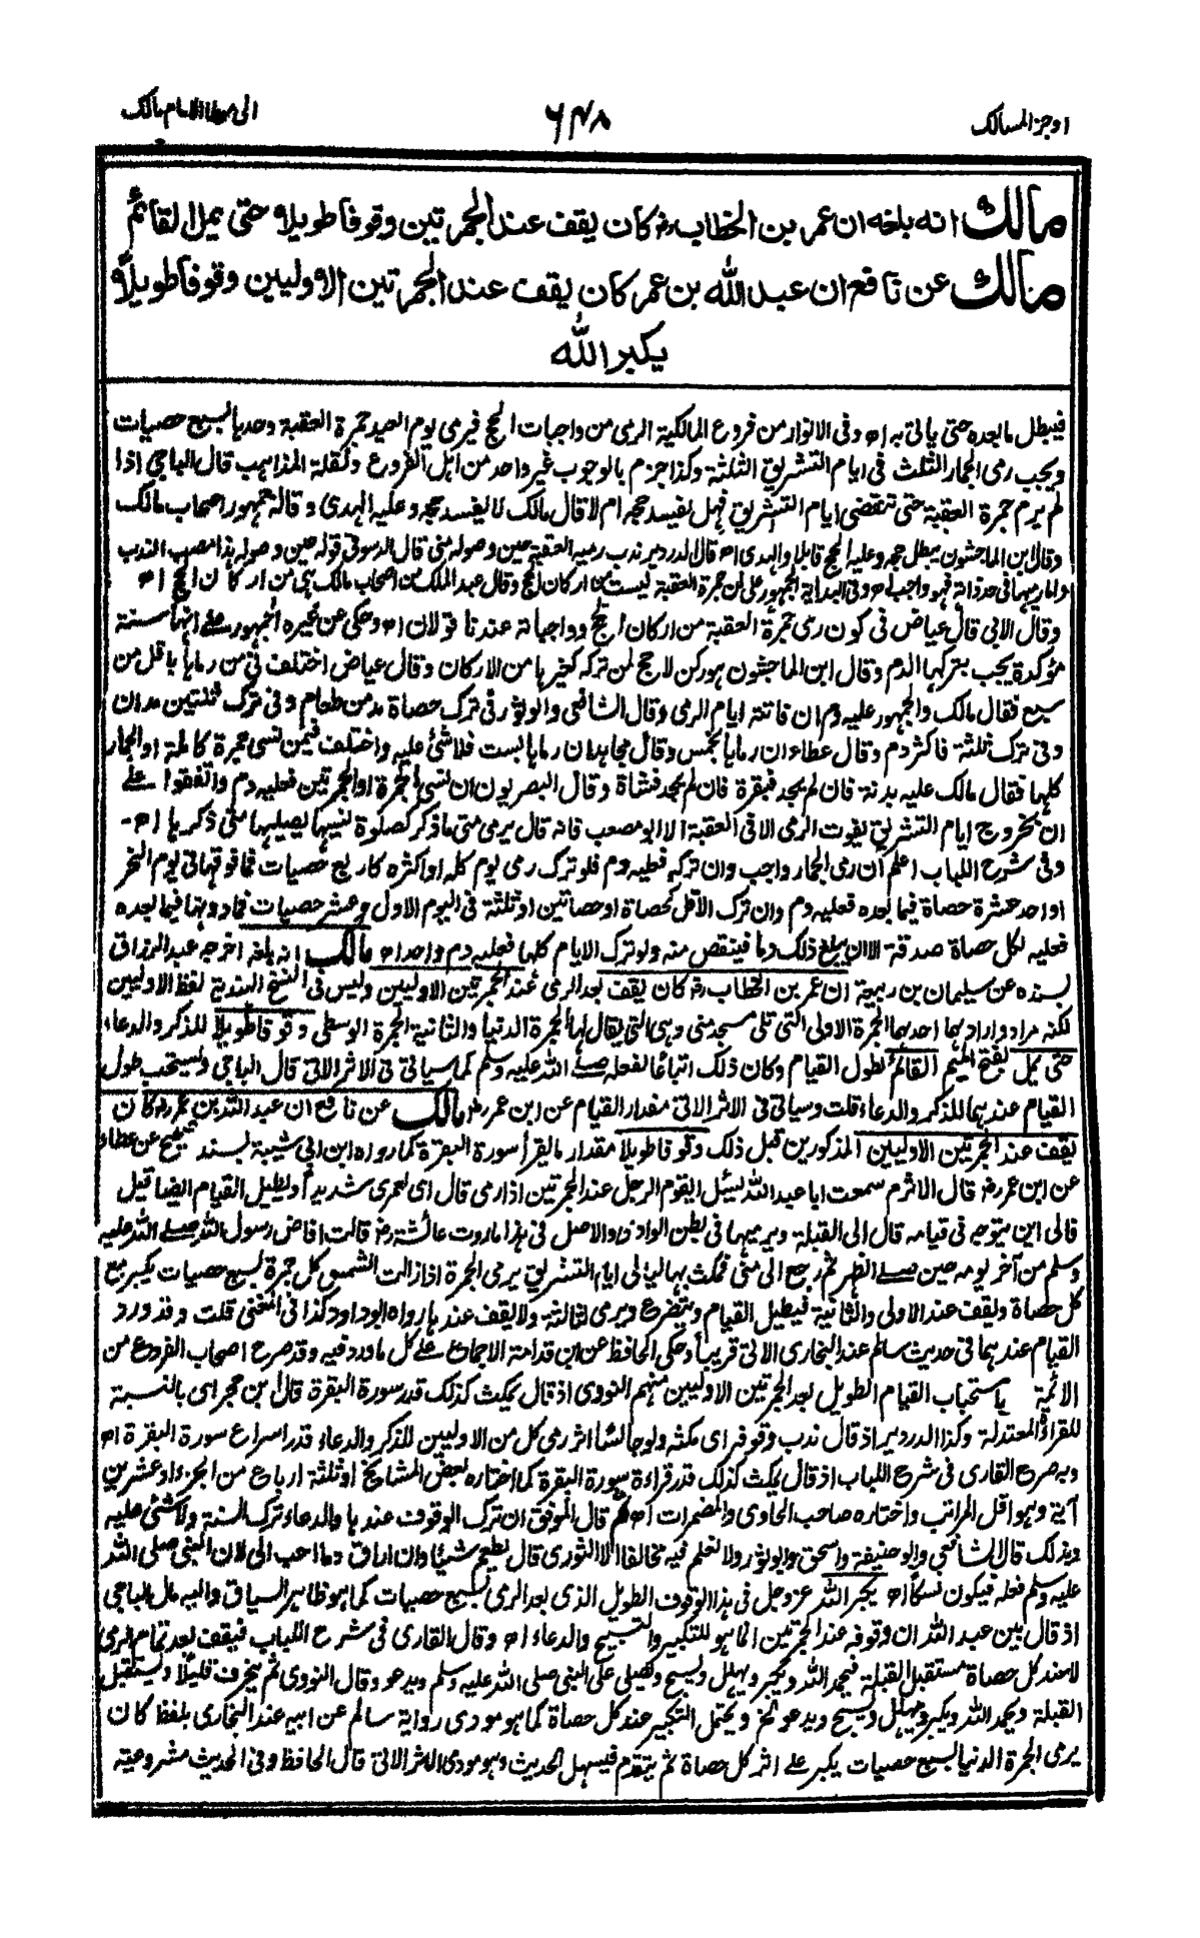 اوجز المسالك
٦٤٨
الى موطا الامام مالك
مالك انه بلغه ان عمر بن الخطاب رض كان يقف عند الجمرتين وقوفا طويلا حتى يمل القائم
مالك عن نافع ان عبد الله بن عمر كان يقف عند الجمرتين الاوليين وقوفا طويلا
يكبر الله
فيبطل ما بعده حتى ياتى به اھ وفى الانوار من فروع المالكية الرمى من واجبات الحج فيرمى يوم العيد جمرة العقبة وحدها بسبع حصيات
ويجب رمى الجمار الثلث فى ايام التشريق الثلثة وكذا جزم بالوجوب غير واحد من اهل الفروع ونقلة المذاهب قال الباجى اذا
لم يرم جمرة العقبة حتى تنقضى ايام التشريق فهل يفسد حجه ام لا قال مالك لا يفسد حجه وعليه الهدى وقاله جمهور اصحاب مالك
وقال ابن الماجشون يبطل حجه وعليه الحج قابلا والهدى اھ قال الدردير ندب رميه العقبة حين وصوله منى قال الدسوقى قوله حين وصوله هذا مصب الندب
واما رميها فى حد ذاته فهو واجب اھ وفى البداية الجمهور على ان جمرة العقبة ليست من اركان الحج وقال عبد الملك من اصحاب مالك هى من اركان الحج اھ
وقال الابى قال عياض فى كون رمى جمرة العقبة من اركان الحج وواجباته عندنا قولان اھ وحكى عن غيره الجمهور على انها سنة
مؤكدة يجب بتركها الدم وقال ابن الماجشون هو ركن لا حج لمن تركه كغيرها من الاركان وقال عياض اختلف فى من رماها باقل من
سبع فقال مالك والجمهور عليه دم ان فاتته ايام الرمى وقال الشافعى وابو ثور فى ترك حصاة مد من طعام وفى ترك ثنتين مدان
وفى ترك ثلثة فاكثر دم وقال عطاء ان رماها بخمس وقال مجاهد ان رماها بست فلا شئ عليه واختلف فيمن نسى جمرة كاملة او الجمار
كلها فقال مالك عليه بدنة فان لم يجد فبقرة فان لم يجد فشاة وقال البصريون ان نسى الجمرة او الجمرتين فعليه دم واتفقوا على
ان بخروج ايام التشريق يفوت الرمى الا فى العقبة الا ابو مصعب فانه قال يرمى متى ما ذكر كصلوة نسيها يصليها متى ذكرها اھ -
وفى شرح اللباب اعلم ان رمى الجمار واجب وان تركه فعليه دم فلو ترك رمى يوم كله او اكثره كاربع حصيات فما فوقها فى يوم النحر
او احد عشرة حصاة فيما بعده فعليه دم وان ترك الاقل كحصاة او حصاتين او ثلثة فى اليوم الاول وعشر حصيات فما دونها فيما بعده
فعليه لكل حصاة صدقة الا ان يبلغ ذلك دما فينقص منه ولو ترك الايام كلها فعليه دم واحد اھ مالك انه بلغه اخرجه عبد الرزاق
بسنده عن سليمان بن ربيعة ان عمر بن الخطاب رض كان يقف بعد الرمى عند الجمرتين الاوليين وليس فى النسخ الهندية لفظ الاوليين
لكنه مراد وارادبهما احدهما الجمرة الاولى التى تلى مسجد منى وهى التى يقال لها الجمرة الدنيا والثانية الجمرة الوسطى وقوفا طويلا للذكر والدعاء
حتى يمل بفتح الميم القائم لطول القيام وكان ذلك اتباعا لفعله صلى الله عليه وسلم كما سياتى فى الاثر الاتى قال الباجى ويستحب طول
القيام عندهما للذكر والدعاء قلت وسياتى فى الاثر الاتى مقدار القيام عن ابن عمر رض مالك عن نافع ان عبد الله بن عمر رض كان
يقف عند الجمرتين الاوليين المذكورين قبل ذلك وقوفا طويلا مقدار ما يقرأ سورة البقرة كما رواه ابن ابى شيبة بسند صحيح عن عطاء
عن ابن عمر رض قال الاثرم سمعت ابا عبد الله يسئل ايقوم الرجل عند الجمرتين اذا رمى قال اى لعمرى شديدا ويطيل القيام ايضا قيل
فالى اين يتوجه فى قيامه قال الى القبلة ويرميها فى بطن الوادى والاصل فى هذا ما روت عائشة رض قالت افاض رسول الله صلى الله عليه
وسلم من آخر يومه حين صلى الظهر ثم رجع الى منى فمكث بها ليالى ايام التشريق يرمى الجمرة اذا زالت الشمس كل جمرة بسبع حصيات يكبر مع
كل حصاة ويقف عند الاولى والثانية فيطيل القيام ويتضرع ويرمى الثالثة ولا يقف عندها رواه ابو داود كذا فى المغنى قلت وقد ورد
القيام عندهما فى حديث سالم عند البخارى الاتى قريبا وحكى الحافظ عن ابن قدامة الاجماع على كل ما ورد فيه وقد صرح اصحاب الفروع من
الائمة باستحباب القيام الطويل بعد الجمرتين الاوليين منهم النووى اذ قال يمكث كذلك قدر سورة البقرة قال ابن حجر اى بالنسبة
للقراءة المعتدلة وكذا الدردير اذ قال ندب وقوفه اى مكثه ولو جالسا اثر رمى كل من الاوليين للذكر والدعاء قدر اسراع سورة البقرة اھ
وبه صرح القارى فى شرح اللباب اذ قال يمكث كذلك قدر قراءة سورة البقرة كما اختاره بعض المشايخ او ثلثة ارباع من الجزء او عشرين
آية وهو اقل المراتب واختاره صاحب الحاوى والمضمرات اھ ثم قال الموفق ان ترك الوقوف عندها والدعاء ترك السنة ولا شئ عليه
وبذلك قال الشافعى وابو حنيفة واسحق وابو ثور ولا نعلم فيه مخالفا الا الثورى قال يطعم شيئا وان اراق دما احب الى لان النبى صلى الله
عليه وسلم فعله فيكون نسكا اھ يكبر الله عز وجل فى هذا الوقوف الطويل الذى بعد الرمى بسبع حصيات كما هو ظاهر السياق واليه مال الباجى
اذ قال بين عبد الله ان وقوفه عند الجمرتين انما هو للتكبير والتسبيح والدعاء اھ وقال القارى فى شرح اللباب فيقف بعد تمام الرمى
لا عند كل حصاة مستقبل القبلة فيحمد الله ويكبر ويهلل ويسبح ويصلى على النبى صلى الله عليه وسلم ويدعو وقال النووى ثم ينحرف قليلا ويستقبل
القبلة ويحمد الله ويكبر ويهلل ويسبح ويدعو الخ ويحتمل التكبير عند كل حصاة كما هو مودى رواية سالم عن ابيه عند البخارى بلفظ كان
يرمى الجمرة الدنيا بسبع حصيات يكبر على اثر كل حصاة ثم يتقدم فيسهل الحديث وهو مودى الاثر الاتى قال الحافظ وفى الحديث مشروعية